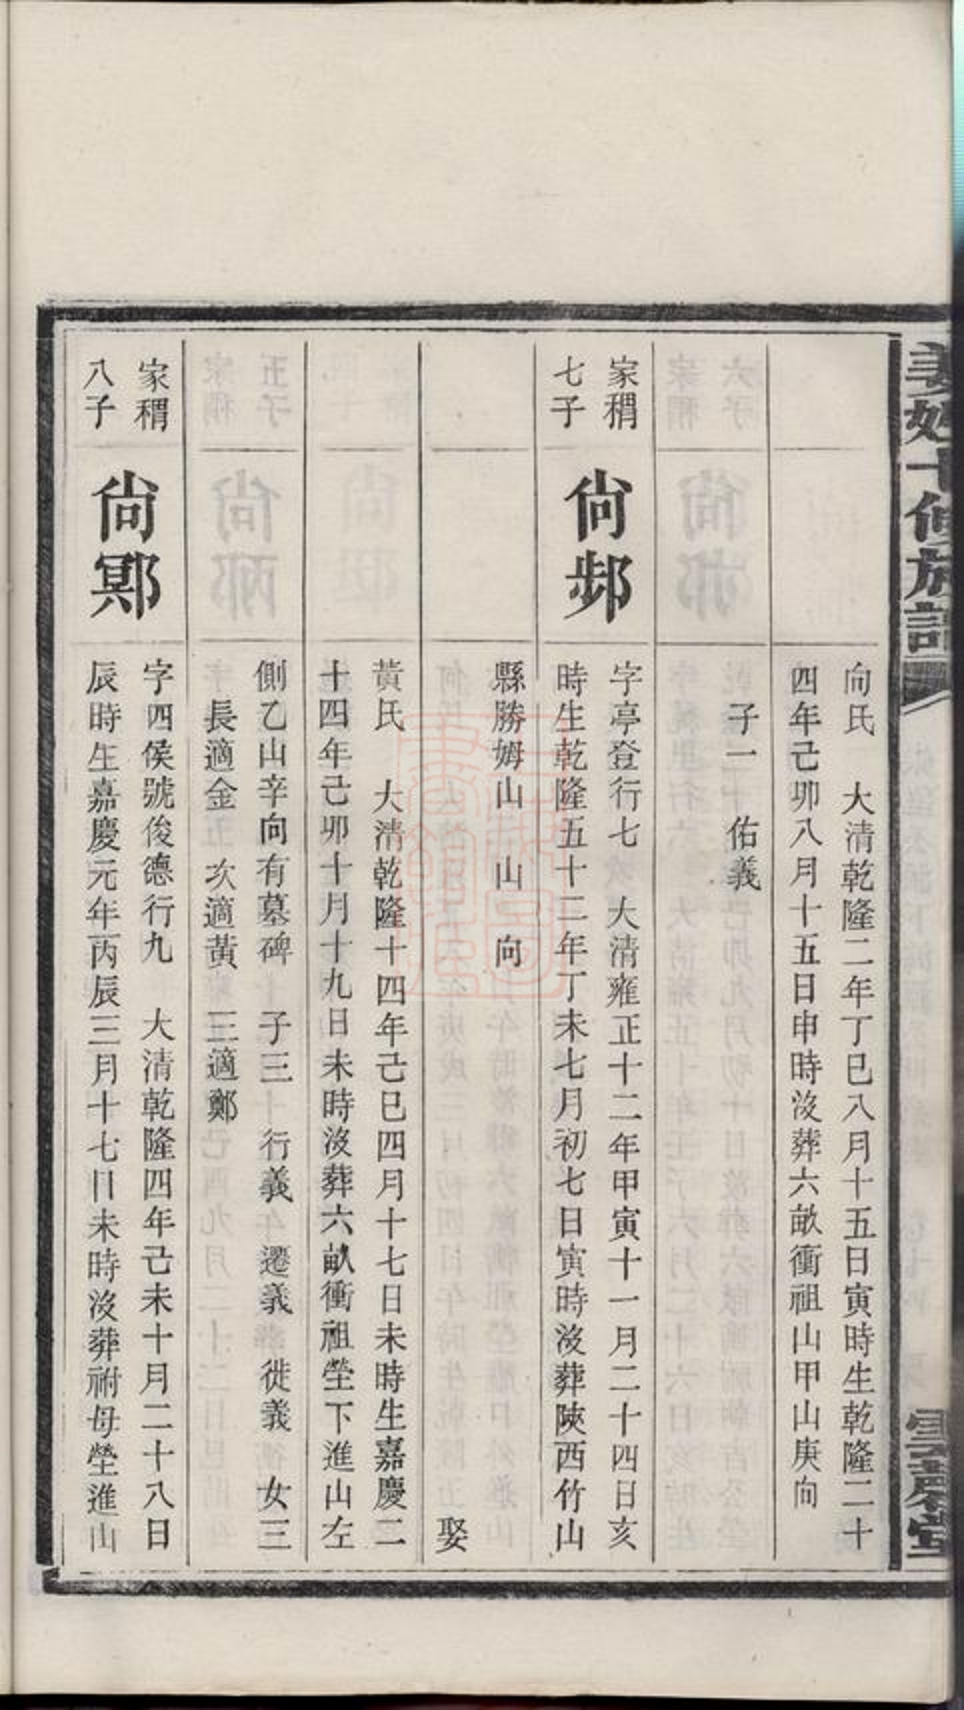 向氏　大清乾隆二年丁巳八月十五日寅時生乾隆二十
四年己卯八月十五日申時沒葬六畝衝祖山甲山庚向
子一　佑義
家稩
七子
尙邺
字亭登行七　大清雍正十二年甲寅十一月二十四日亥
時生乾隆五十二年丁未七月初七日寅時沒葬陝西竹山
縣勝姆山　山　向
娶
黃氏　大清乾隆十四年己巳四月十七日未時生嘉慶二
十四年己卯十月十九日未時沒葬六畝衝祖塋下進山左
側乙山辛向有墓碑　子三　行義　遷義　徙義　女三
長適金　次適黃　三適鄭
家稩
八子
尙鄍
字四侯號俊德行九　大清乾隆四年己未十月二十八日
辰時生嘉慶元年丙辰三月十七日未時沒葬祔母塋進山